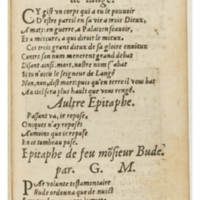 de langé.
CY gist vn corps qui a eu le pouuoir
D'estre parti en sa vie a trois Dieux,
A mars, en guerre a Palas en sçauoir,
Et a mercure, a qui diroit le mieux.
Ces trois grans dieux de sa gloire enuieux
Contre son nom commencerent grand debat
Disant ainsi. mars, nostre nom s'abat
Si tu n'occis le seigneur de Langé
Non, non, dist mort puis qu'en terre il vous bat
Au ciel sera plus hault que vous rengé.
Aultre Epitaphe.
Passant va, te repose,
On icques n'ay reposés
Aumoins que te repose
En ce tumbeau posé.
Epitaphe de feu mõsieur Bude.
par. G. M.
PAr volunte testamentaire
Bude ordonna que de nuict